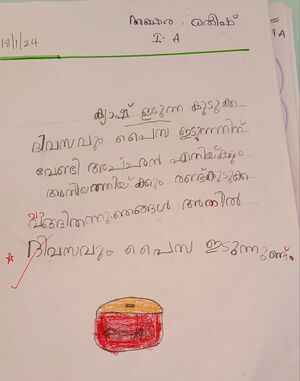 18/1/24
അക്ഷര രതീഷ്
I. A
ക്യാഷ് ഇടുന്ന കുടുക്ക
ദിവസവും പൈസ ഇടുന്നനിന്
വേണ്ടി അച്ഛൻ എനിയ്ക്കും
അനിയത്തിയ്ക്കും രണ്ട്കുടുക്ക
വാങ്ങിതന്നു.ഞങ്ങൾ അതിൽ
ദിവസവും പൈസ ഇടുന്നുണ്ട്.